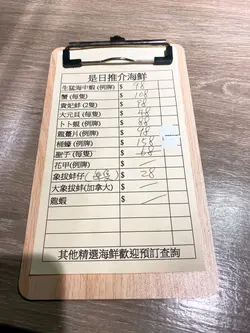 是日推介海鮮
生猛海中蝦 (例牌) $ 98
蟹 (每隻) $ 108
貴妃蚌 (2隻) $ 98
大元貝 (每隻) $ 48
卜卜蜆 (例牌) $ 88
龍躉片 (例牌) $ 98
桶蠔 (例牌) $ 158
聖子 (每隻) $ 68
花甲 (例牌) $ —
象拔蚌仔 (每隻) $ 28
大象拔蚌(加拿大) $ —
龍蝦 $ —
其他精選海鮮歡迎預訂查詢